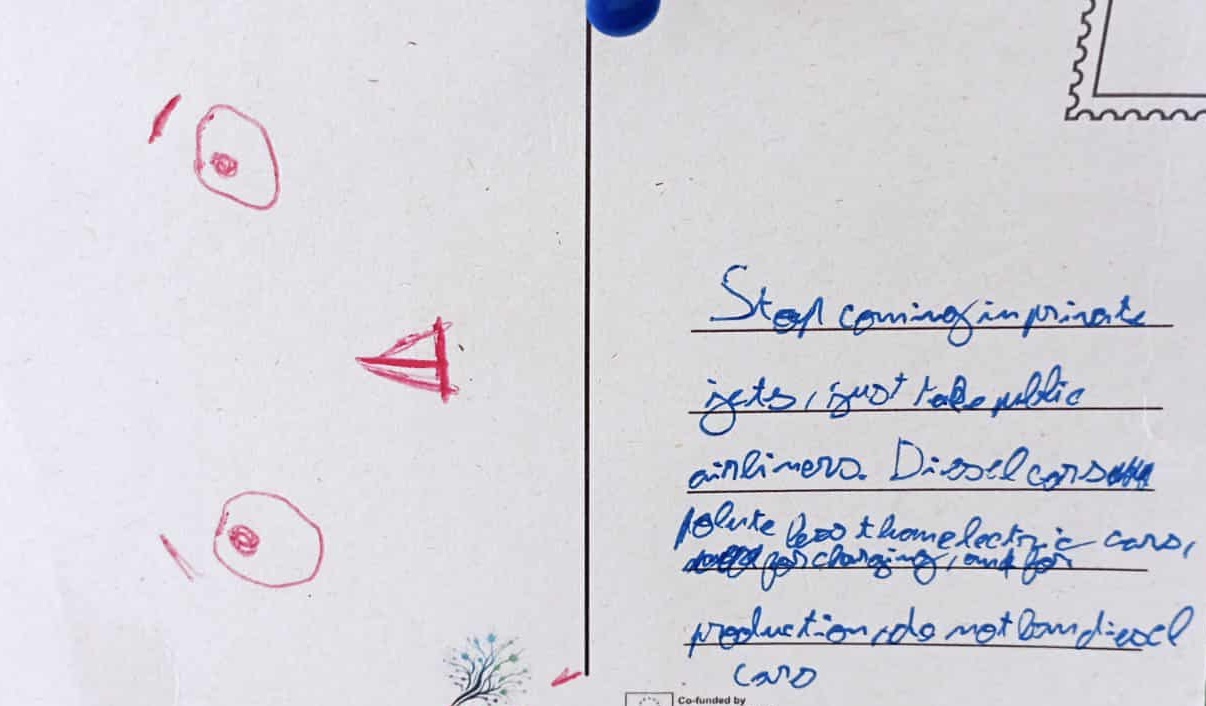 Stop coming in private
jets, just take public
airliners. Diesel cars
polute less than electric cars,
for charging, and for
production, do not ban diesel
cars
Co-funded by